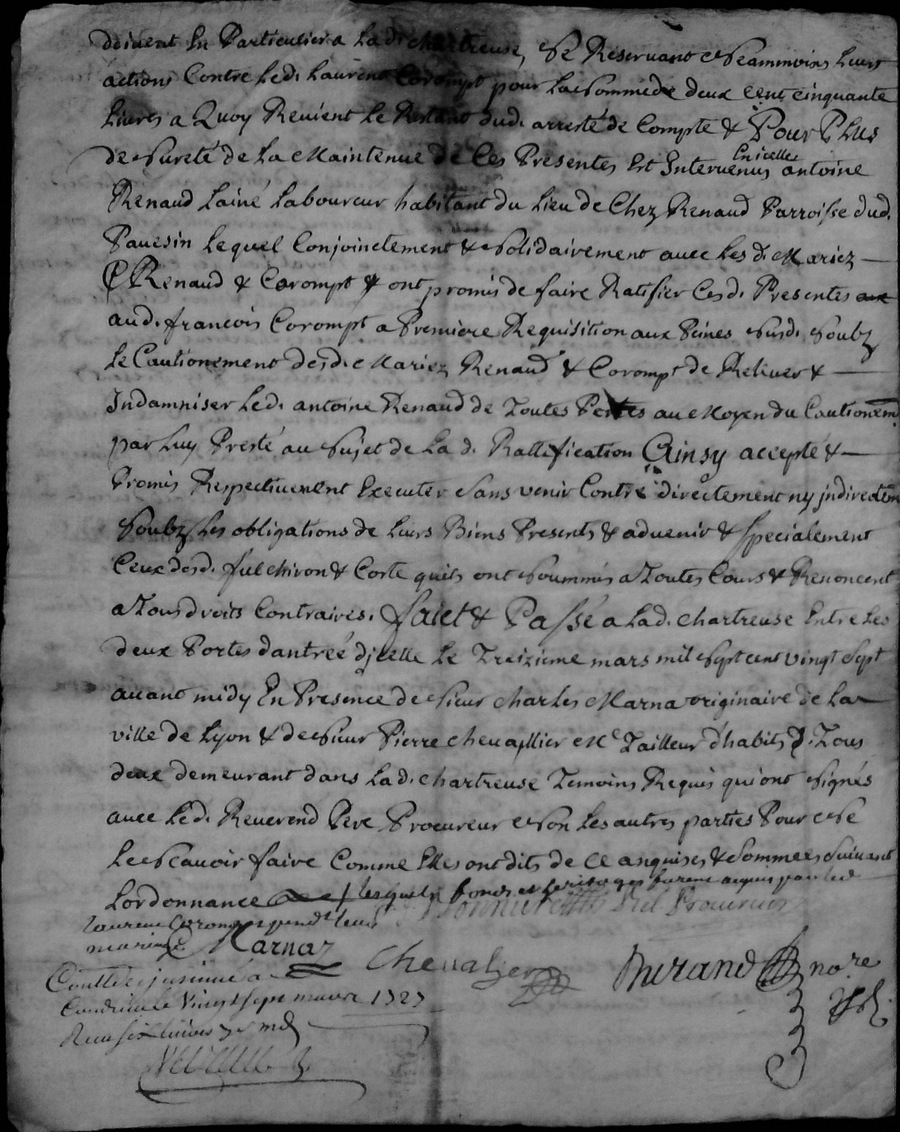 doivent En Particulier a Lad. chartreuse, Se Reservant Neammoins Leurs
actions Contre Led. Laurent Corompt pour La Somme de deux cent cinquante
Livres a Quoy Revient Le Restant dud. arresté de Compte & Pour Plus
de Sureté de La Maintenue de Ces Presentes Est Intervenus En icelles antoine
Renaud Lainé Laboureur habitant du Lieu de Chez Renaud Parroisse dud.
Pavesin Lequel Conjoinctement & Solidairement avec Les d. Mariez
Renaud & Corompt ont promis de faire Ratifier Cesd. Presentes
aud. francois Corompt a Premiere Requisition aux Peines Susd. Soubz
Le Cautionement desd. Mariez Renaud & Corompt de Relever &
Indamniser Led. antoine Renaud de Toutes Pertes au Moyen du Cautionem.
par Luy Presté au Sujet de La d. Rattification Ainsy accepté &
Promis Respectivement Executer Sans venir Contre directement ny jndirectem
Soubz Les obligations de Leurs Biens Presents & advenir & specialement
Ceux desd. fulchiron & Corte quils ont Soummis a Toutes Cours & Renoncent
a Tous droits Contraires. faict & Passé a Lad. chartreuse Entre Les
deux Portes dantreé djcelle Le Treizieme mars mil Sept cent vingt Sept
avant midy En Presence de Sieur Charles Marna originaire de La
ville de Lyon & de Sieur Pierre chevallier Me. Tailleur d'habits Tous
deux demeurant dans Lad. chartreuse Temoins Requis qui ont Signés
avec Led. Reverend Pere Procureur Non Les autres parties Pour Ne
Le Scavoir faire Comme Elles ont dits de ce anquises & Sommees Suivant
Lordonnance lesquels fonds et heritages furent acquis par led
Laurent Corompt pendt. leur
mariage Marnaz
Chevalier Durand no.re
Conttrolé jnsinué a
Condrieu le Vingt sept mars 1727
Recu six livres